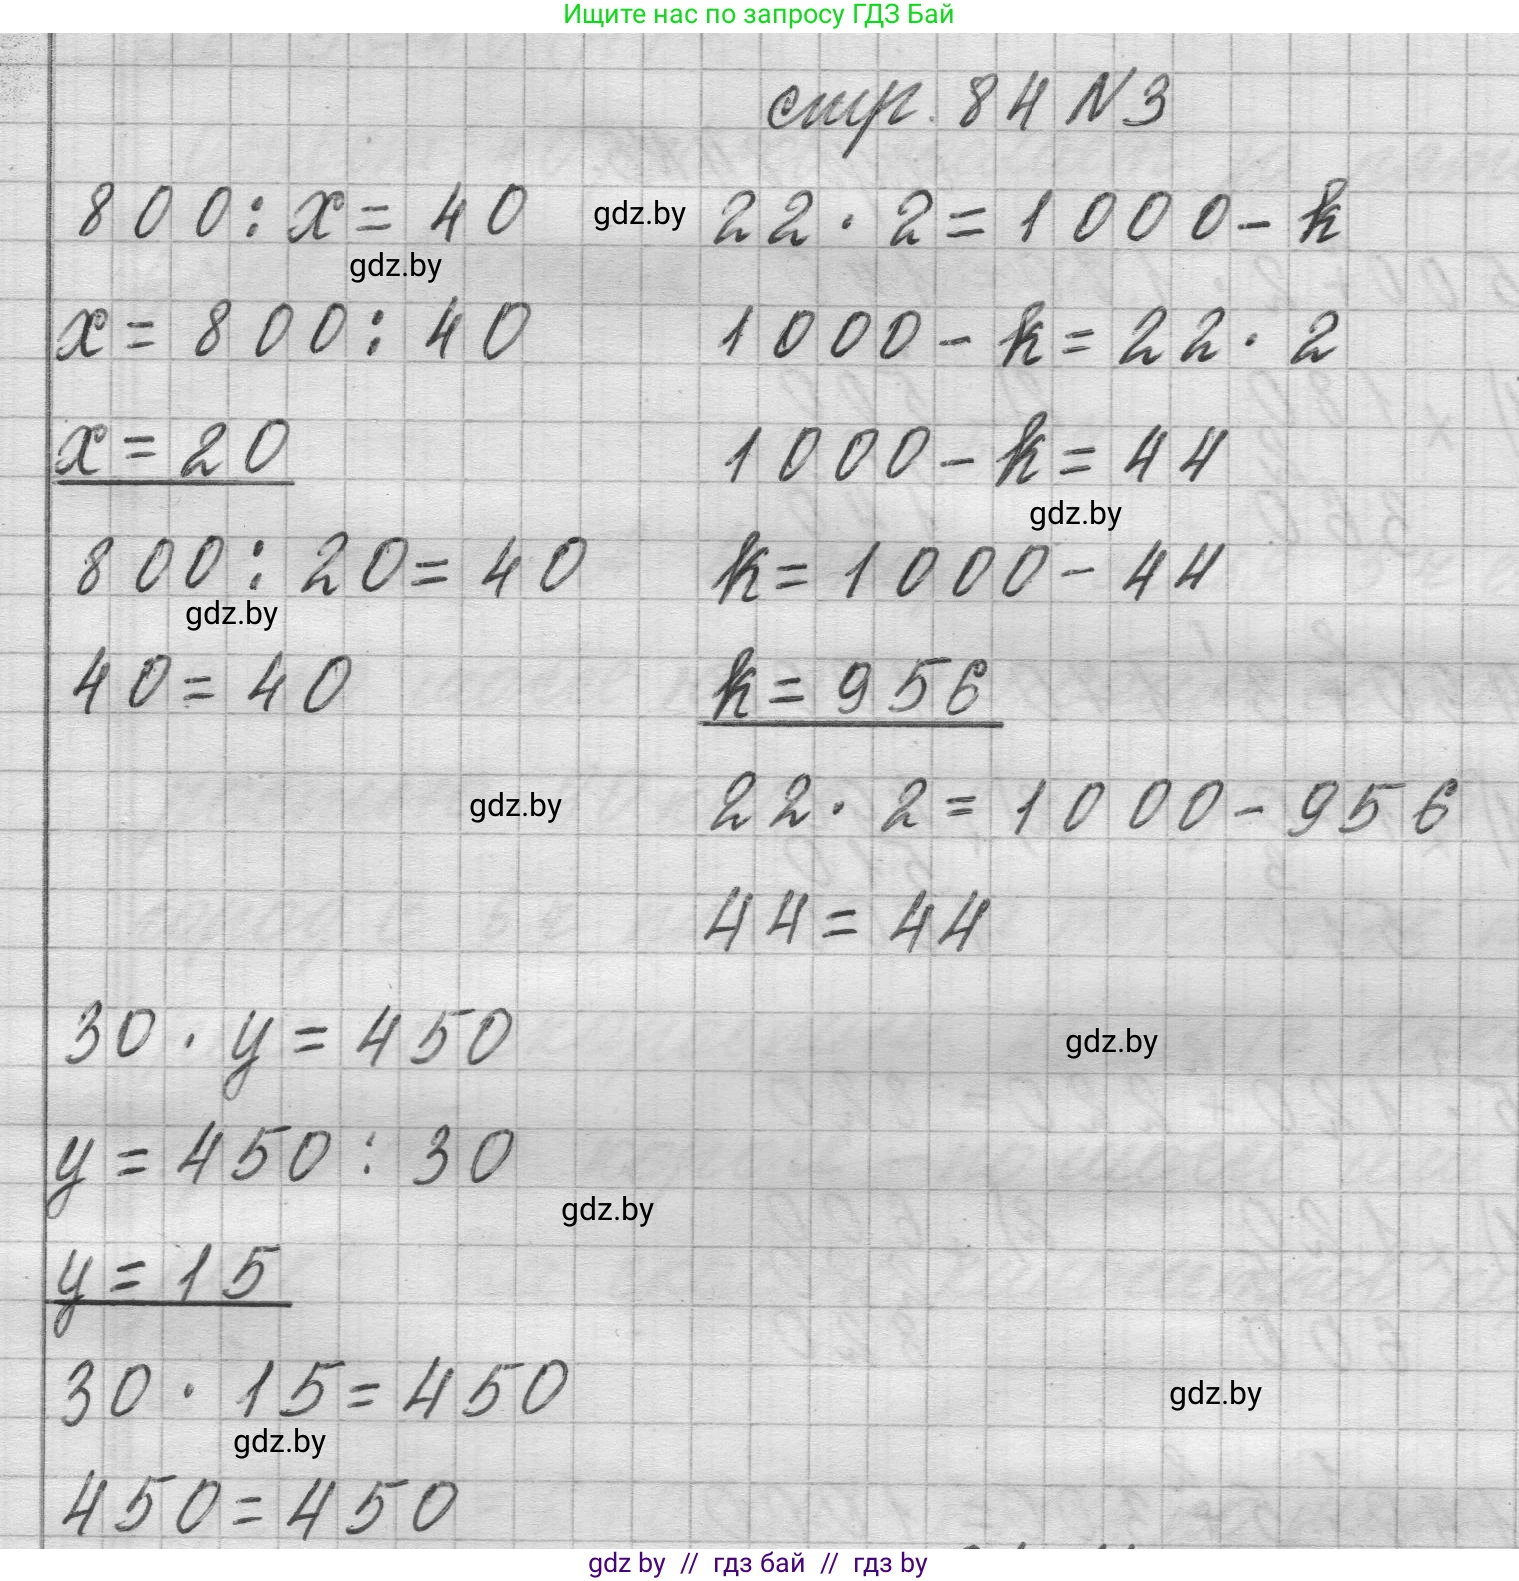 Ищите нас по запросу ГДЗ Бай
стр. 84 N 3
800 : x = 40
gdz.by
x = 800 : 40
x = 20
800 : 20 = 40
gdz.by
40 = 40
gdz.by
22 · 2 = 1000 - k
1000 - k = 22 · 2
1000 - k = 44
gdz.by
k = 1000 - 44
k = 956
gdz.by
22 · 2 = 1000 - 956
44 = 44
30 · y = 450
gdz.by
y = 450 : 30
gdz.by
y = 15
30 · 15 = 450
gdz.by
gdz.by
450 = 450
gdz by // гдз бай // гдз by